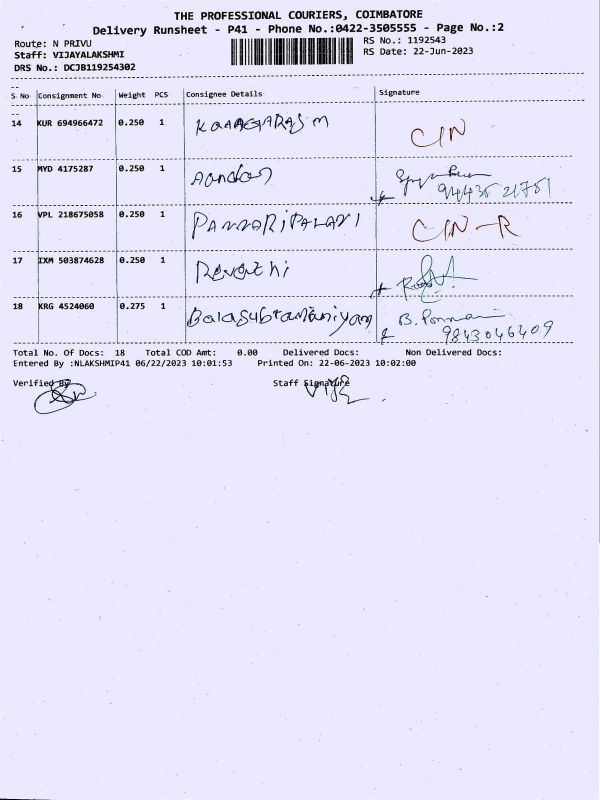 THE PROFESSIONAL COURIERS, COIMBATORE
Delivery Runsheet - P41 - Phone No.:0422-3505555 - Page No.:2
Route: N PRIVU
RS No.: 1192543
Staff: VIJAYALAKSHMI
RS Date: 22-Jun-2023
DRS No.: DCJB119254302
S No Consignment No Weight PCS Consignee Details Signature
14 KUR 694966472 0.250 1
CIN
15 MYD 4175287 0.250 1
9443521751
16 VPL 218675058 0.250 1 PANNARIPALANI CIN-R
17 IXM 503874628 0.250 1 Revathi
18 KRG 4524060 0.275 1 Balasubramaniyam
9843046409
Total No. Of Docs: 18 Total COD Amt: 0.00 Delivered Docs: Non Delivered Docs:
Entered By :NLAKSHMIP41 06/22/2023 10:01:53 Printed On: 22-06-2023 10:02:00
Verified By Staff Signature